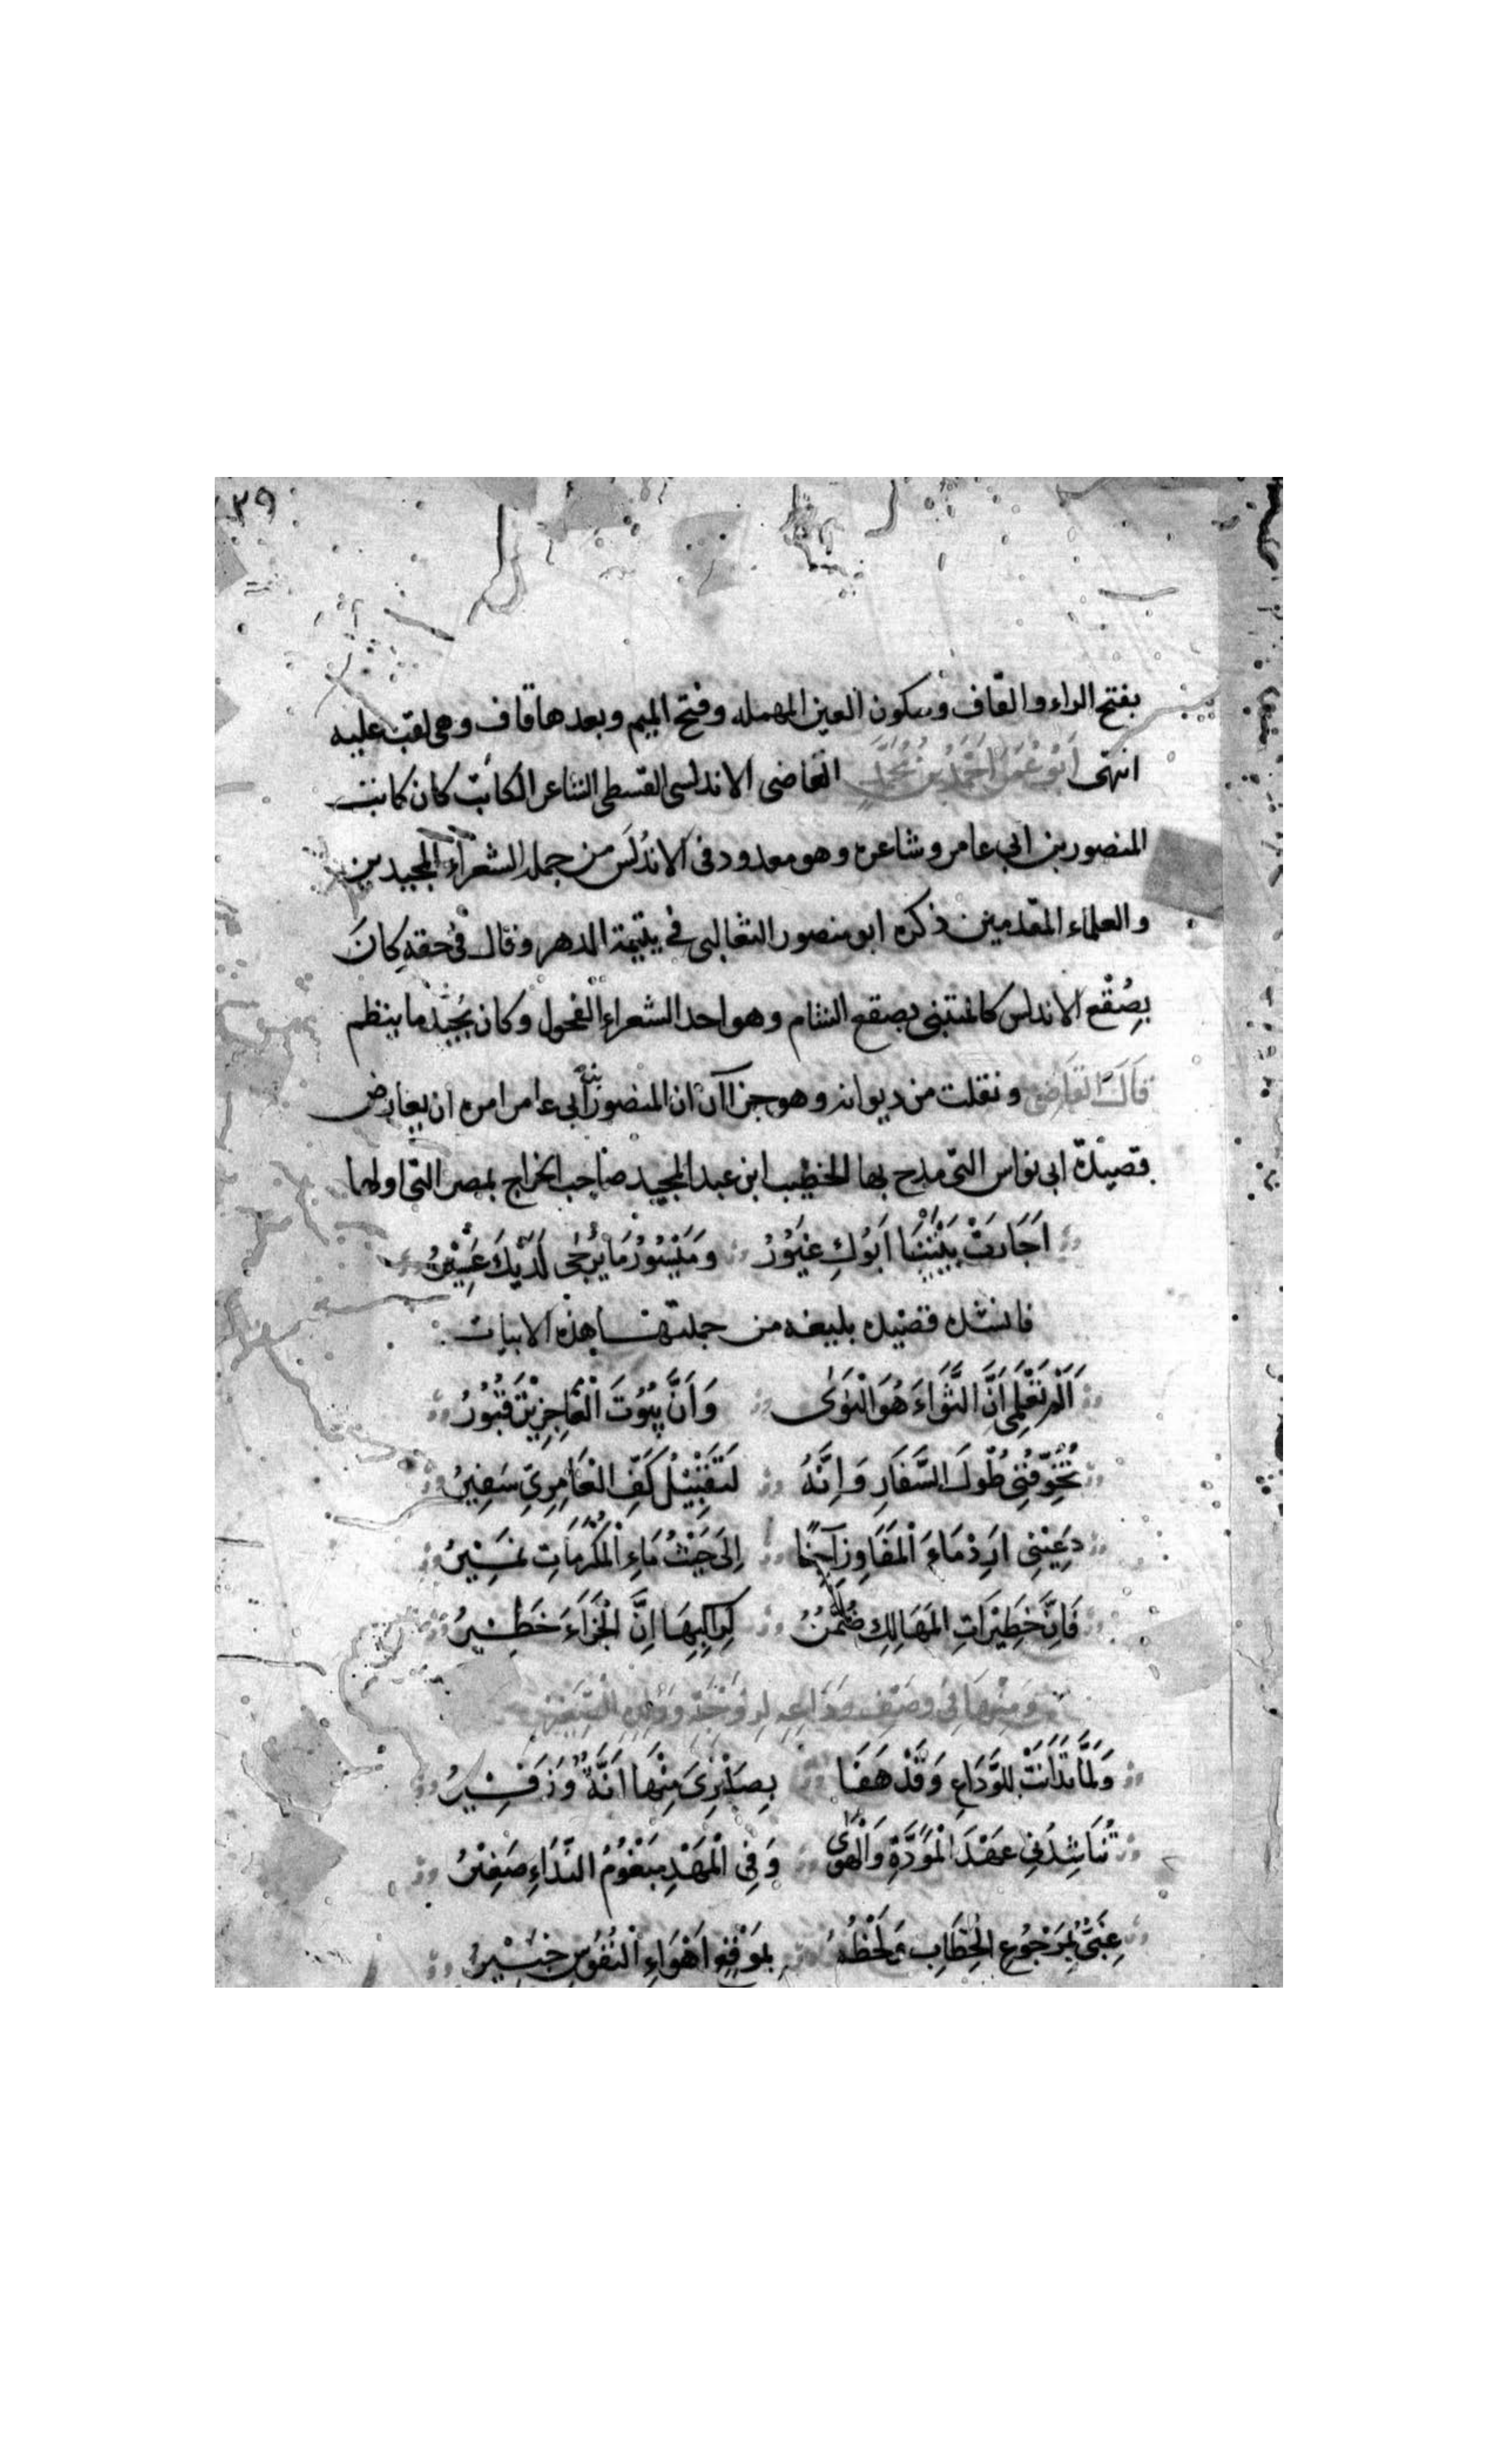 ٣٩
بفتح الراء والقاف وسكون العين المهمله وفتح الميم وبعدها قاف وهى لقب عليه
انتهى اَبُو عُمَر اَحْمَد بن مُحَمَّدٍ القاضى الاندلسى القسطلى الشاعر الكاتب كان كاتب
المنصور بن ابى عامر وشاعره وهو معدود فى الاندُلَس من جملة الشعرآء المجيدين
والعلماء المقدمين ذكره ابو منصور الثعالبى فى يتيمة الدهر وقال فى حقهِ كانَ
بِصُقْع الاندلس كالمتنبى بصقع الشام وهو احد الشعراءِ الفحول وكان يُجِيْدُ ما ينظم
قَالَ القَاضى ونقلت من ديوانه وهو جزاآن ان المنصور بن ابى عامر امره ان يعارض
قصيدة ابى نواس التى مدح بها الخطيب ابن عبد المجيد صاحب الخراج بمصر التى اولها
اَجَارَتْ بَيْتَيْنَا اَبُوْكِ غَيُوْرُ وَمَيْسُوْرُ مَا يُرْجٰى لَدَيْكَ عَسِيْرُ
فانشد قصيده بليغه من جملتها هذه الابيات
اَلَمْ تَعْلَمِى اَنَّ الثَّوَاءَ هُوَ النَّوٰى وَاَنَّ بُيُوْتَ الْعَاجِزِيْنَ قُبُوْرُ
تُخَوِّفُنِى طُوْلَ السَّفَارِ وَاِنَّهُ لَتَقْبِيْلُ كَفِّ الْعَامِرِيِّ سَفِيْرُ
دَعِيْنِى اَرِدْ مَاءَ الْمَفَاوِزِ آجِنًا اِلَى حَيْثُ مَاءِ الْمَكْرُمَاتِ نَمِيْرُ
فَاِنَّ خَطِيْرَاتِ المَهَالِكِ ضُمَّنُ لِرَاكِبِهَا اِنَّ الْجَزَآءَ خَطِيْرُ
وَمِنْهَا فِى وَصْفِ وَدَاعِهِ لِزَوْجَتِهِ وَوَلَدِهِ الصَّغِيْرِ
وَلَمَّا تَدَانَتْ لِلْوَدَاعِ وَقَدْ هَفَا بِصَبْرِىَ مِنْهَا اَنَّةٌ وَزَفِيْرُ
تُنَاشِدُنِى عَهْدَ الْمَوَدَّةِ وَالْهَوٰى وَفِى الْمَهْدِ مَبْغُوْمُ النِّدَاءِ صَغِيْرُ
عَيِىٌّ بِمَرْجُوْعِ الْخِطَابِ وَلَحْظُهُ بِمَوْقِعِ اَهْوَاءِ النُّفُوْسِ خَبِيْرُ